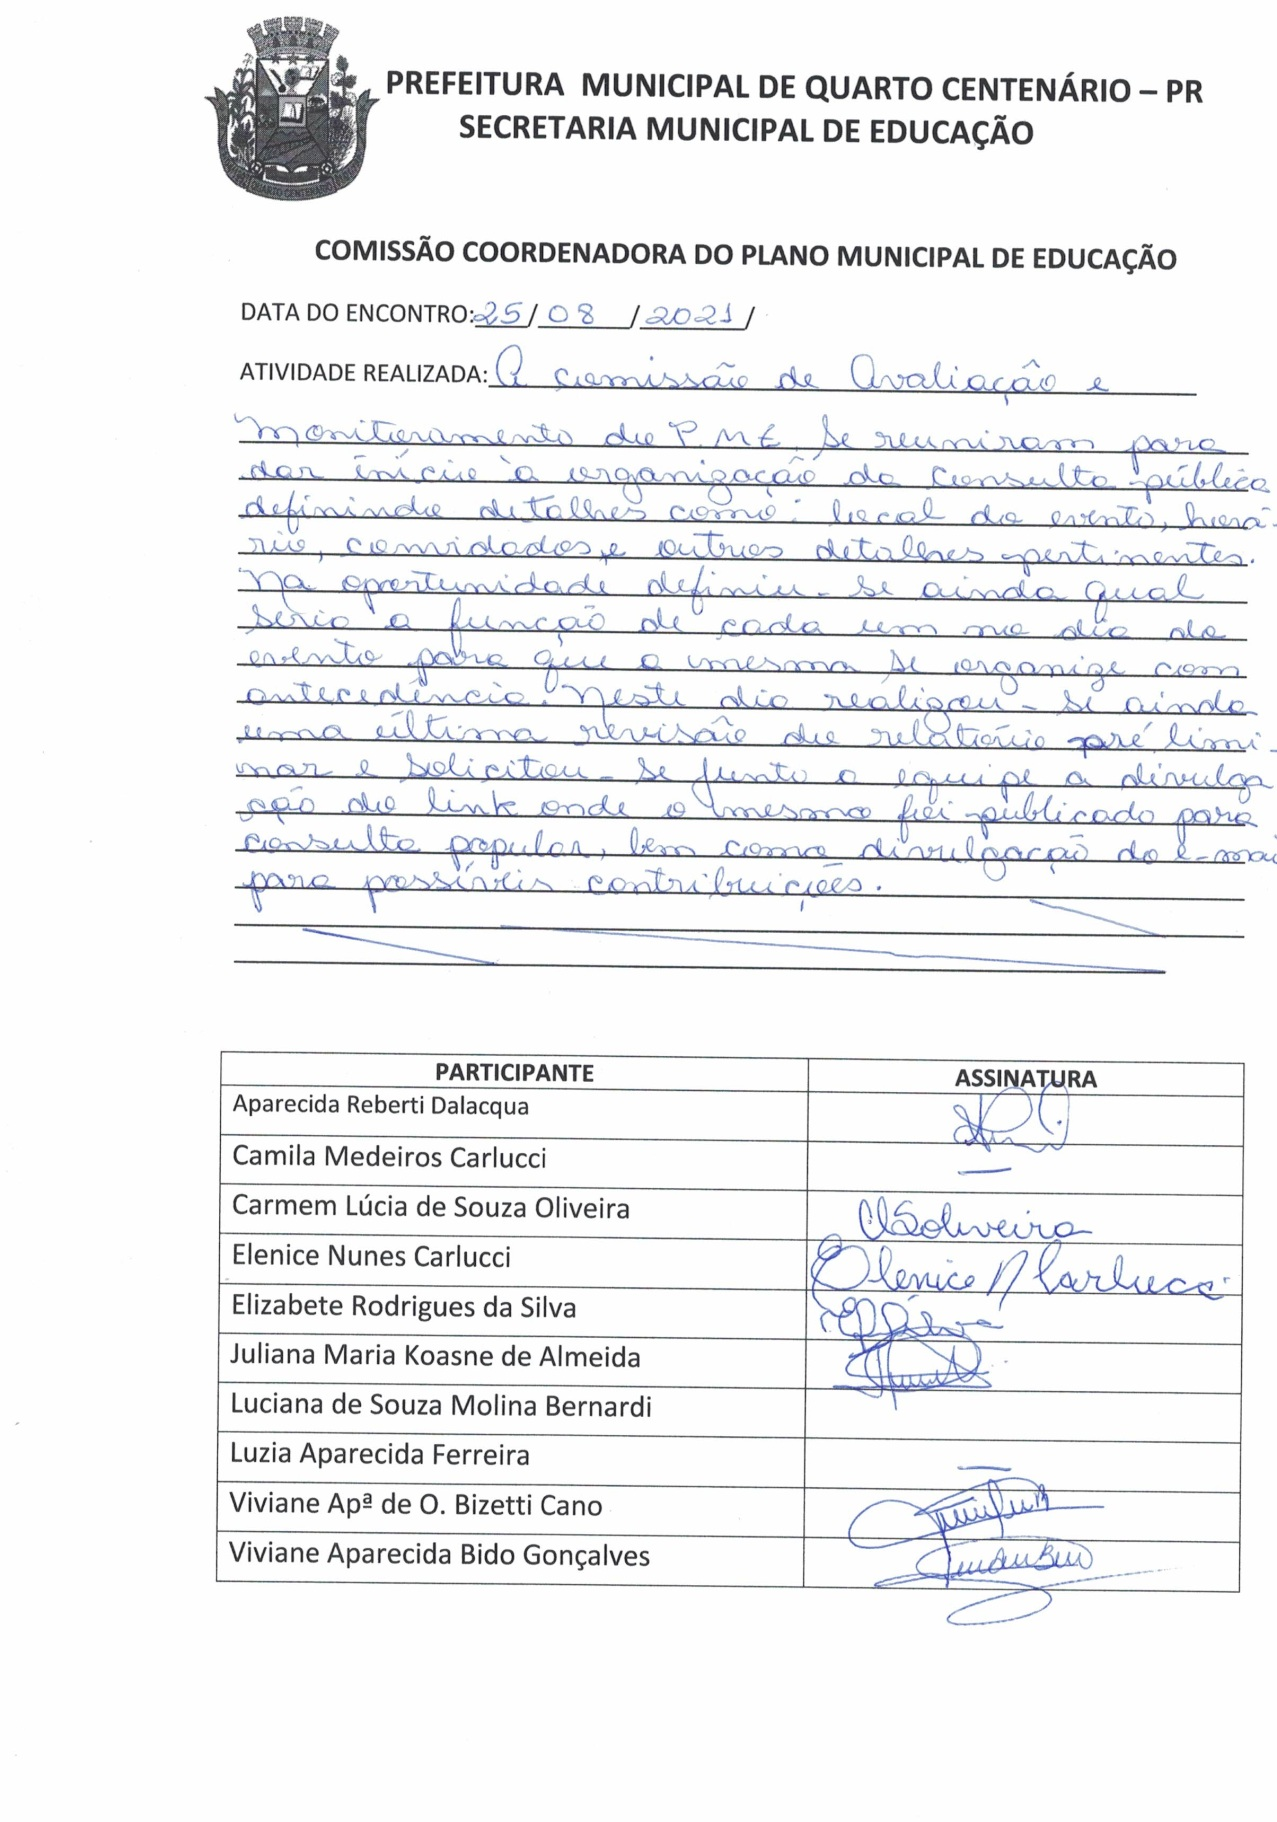 PREFEITURA MUNICIPAL DE QUARTO CENTENÁRIO – PR
SECRETARIA MUNICIPAL DE EDUCAÇÃO
QUARTO CENTENÁRIO
COMISSÃO COORDENADORA DO PLANO MUNICIPAL DE EDUCAÇÃO
DATA DO ENCONTRO: 25/ 08 / 2021/
ATIVIDADE REALIZADA: A comissão de Avaliação e
Monitoramento do P.M.E. se reuniram para
dar início à organização da consulta pública
definindo detalhes como: local do evento, horá-
rio, convidados, e outros detalhes pertinentes.
Na oportunidade definiu-se ainda qual
seria a função de cada um no dia do
evento para que o mesmo se organize com
antecedência. Neste dia realizou-se ainda
uma última revisão do relatório pré limi-
nar e solicitou-se junto a equipe a divulga
ção do link onde o mesmo foi publicado para
consulta popular, bem como divulgação do e-mai
para possíveis contribuições.
PARTICIPANTE ASSINATURA
Aparecida Reberti Dalacqua
Camila Medeiros Carlucci —
Carmem Lúcia de Souza Oliveira CLSOliveira
Elenice Nunes Carlucci Elenice N Carlucci
Elizabete Rodrigues da Silva
Juliana Maria Koasne de Almeida
Luciana de Souza Molina Bernardi
Luzia Aparecida Ferreira —
Viviane Apª de O. Bizetti Cano
Viviane Aparecida Bido Gonçalves